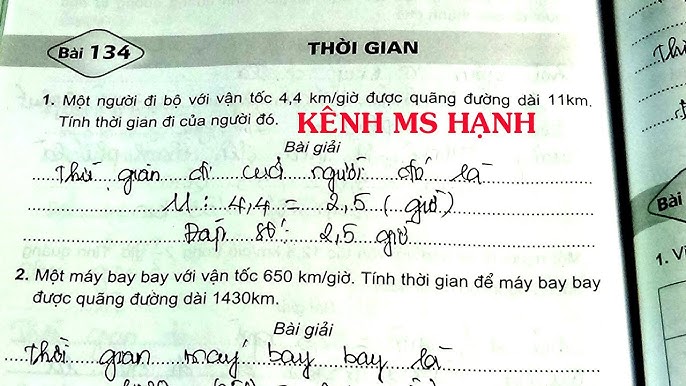 Bài 134
THỜI GIAN
1. Một người đi bộ với vận tốc 4,4 km/giờ được quãng đường dài 11km.
Tính thời gian đi của người đó.
KÊNH MS HẠNH
Bài giải
Thời gian đi của người đó là
11 : 4,4 = 2,5 (giờ)
Đáp số: 2,5 giờ
2. Một máy bay bay với vận tốc 650 km/giờ. Tính thời gian để máy bay bay
được quãng đường dài 1430km.
Bài giải
Thời gian máy bay bay là
Bài
1. V